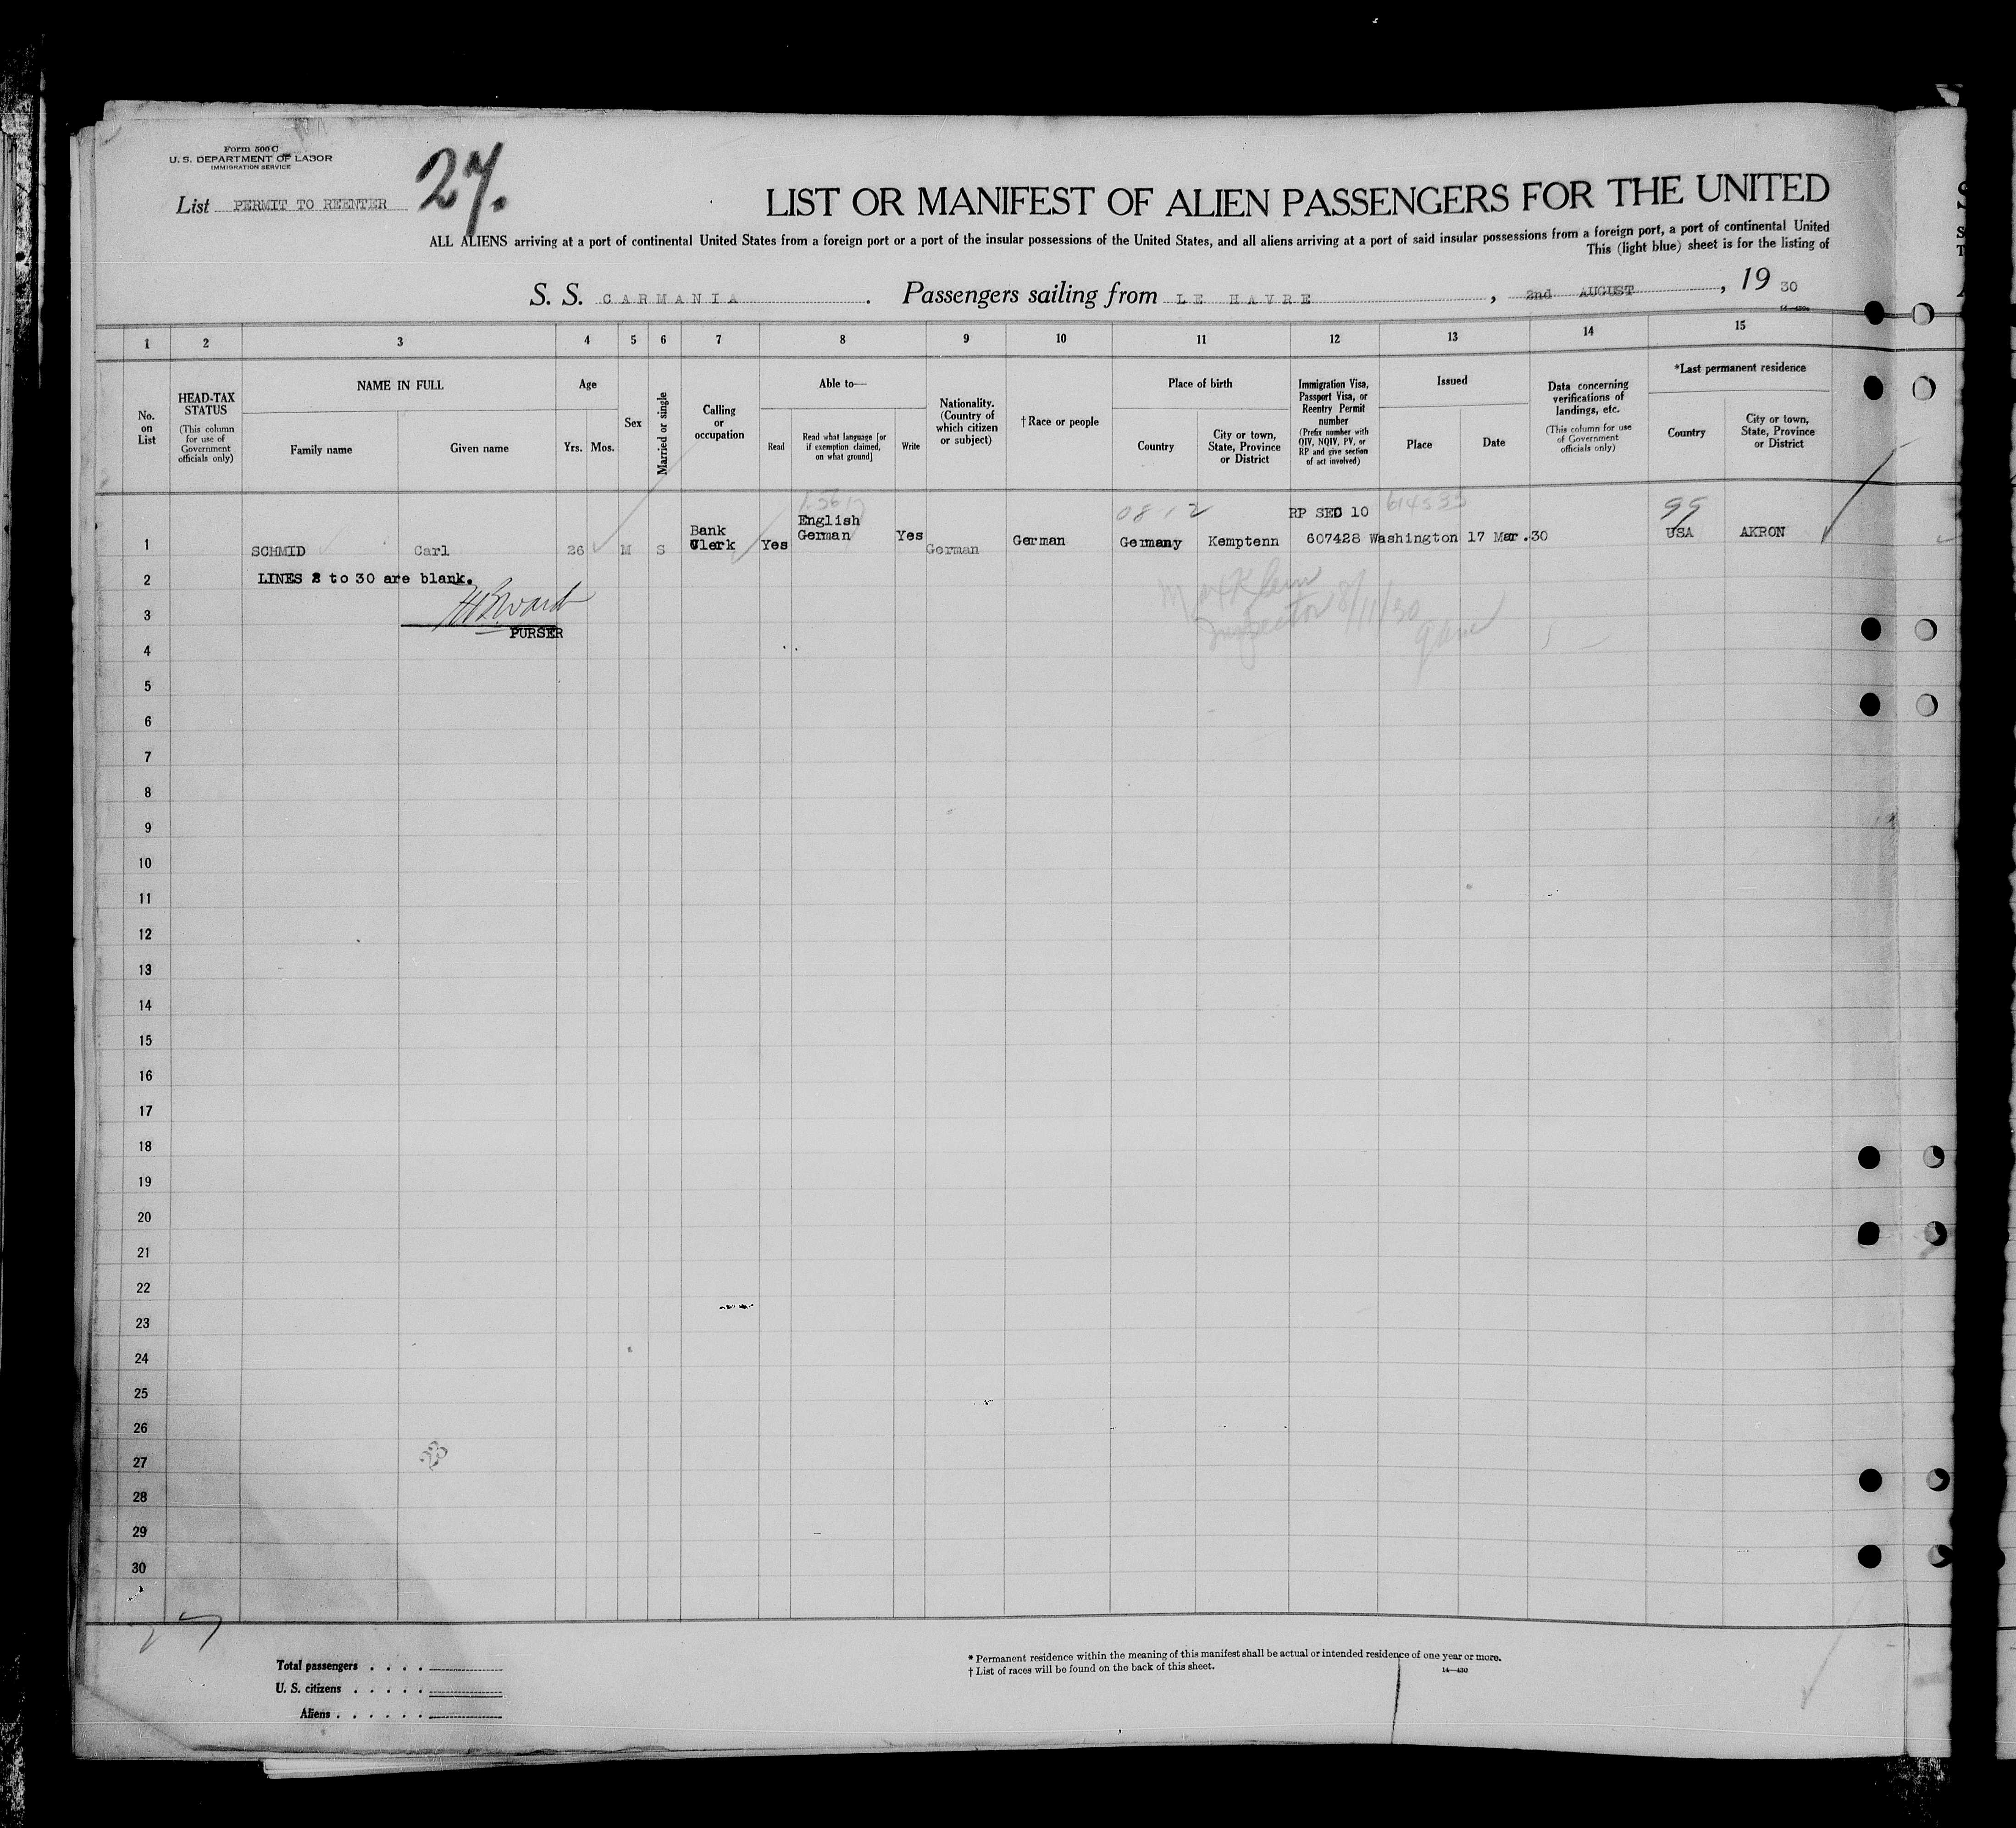 Form 500 C
U. S. DEPARTMENT OF LABOR
IMMIGRATION SERVICE
List PERMIT TO REENTER
27.
LIST OR MANIFEST OF ALIEN PASSENGERS FOR THE UNITED
ALL ALIENS arriving at a port of continental United States from a foreign port or a port of the insular possessions of the United States, and all aliens arriving at a port of said insular possessions from a foreign port, a port of continental United
This (light blue) sheet is for the listing of
S. S. CARMANIA . Passengers sailing from LE HAVRE , 2nd AUGUST , 19 30
1 2 3 4 5 6 7 8 9 10 11 12 13 14 15
No. on List
HEAD-TAX STATUS
(This column for use of Government officials only)
NAME IN FULL
Family name
Given name
Age
Yrs. Mos.
Sex
Married or single
Calling or occupation
Able to—
Read
Read what language [or if exemption claimed, on what ground]
Write
Nationality. (Country of which citizen or subject)
†Race or people
Place of birth
Country
City or town, State, Province or District
Immigration Visa, Passport Visa, or Reentry Permit number
(Prefix number with QIV, NQIV, PV, or RP and give section of act involved)
Issued
Place
Date
Data concerning verifications of landings, etc.
(This column for use of Government officials only)
*Last permanent residence
Country
City or town, State, Province or District
0812
RP SEC 10
614533
99
1 SCHMID Carl 26 M S Bank Clerk Yes English German Yes German German Germany Kemptenn 607428 Washington 17 Mar.30 USA AKRON
2 LINES 2 to 30 are blank.
3
PURSER
Inspector 8/11/30
4
5
6
7
8
9
10
11
12
13
14
15
16
17
18
19
20
21
22
23
24
25
26
27
23
28
29
30
Total passengers . . . .
U. S. citizens . . . . .
Aliens . . . . . .
* Permanent residence within the meaning of this manifest shall be actual or intended residence of one year or more.
† List of races will be found on the back of this sheet.
14—430